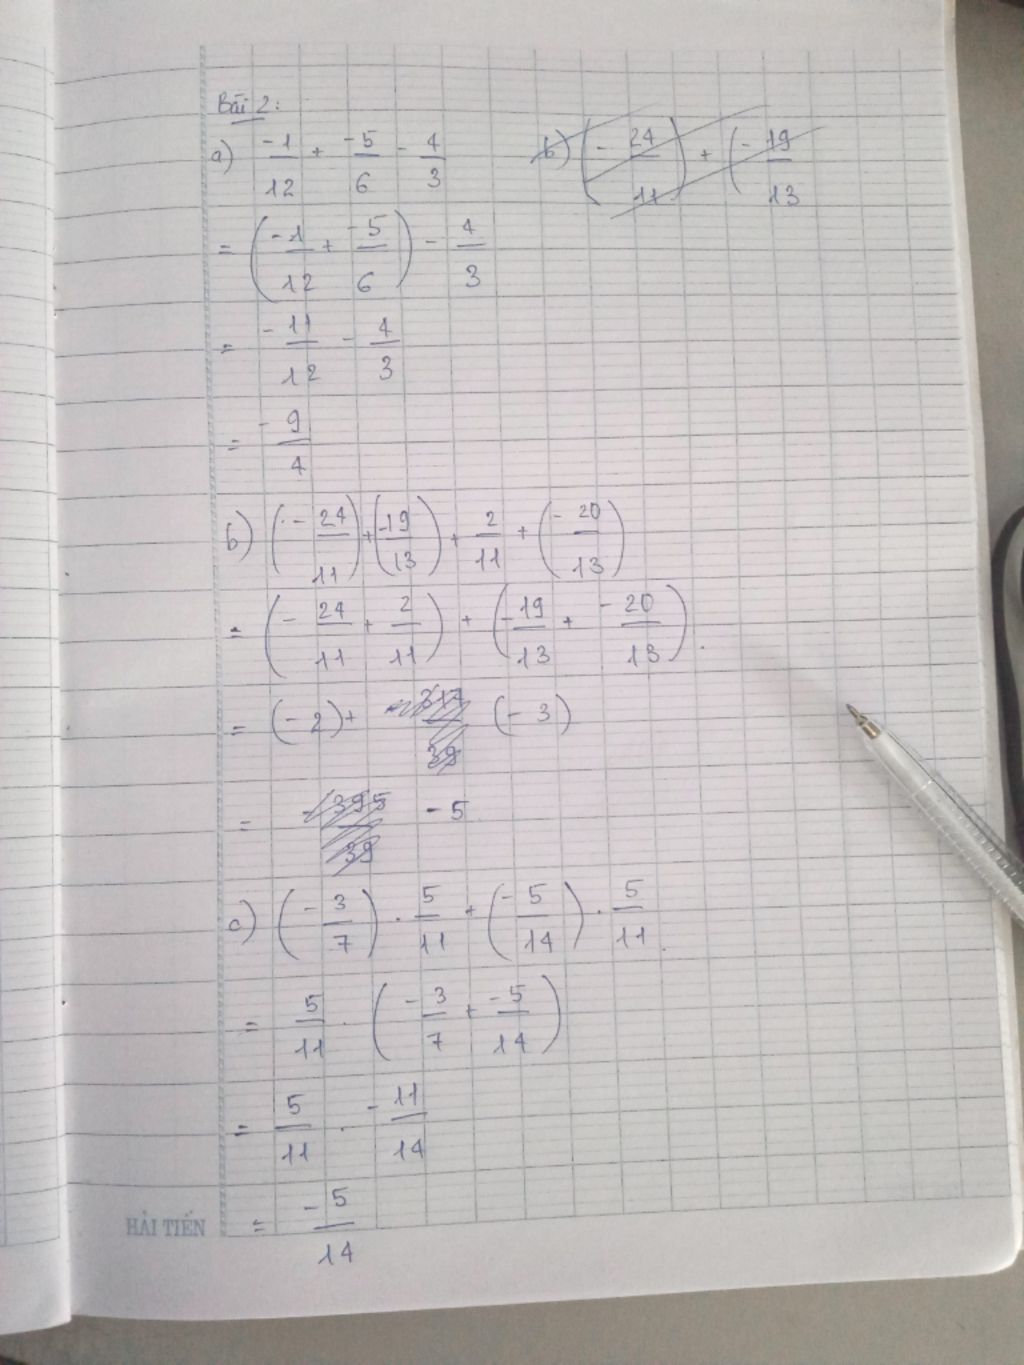 Bài 2:
a) -1/12 + -5/6 - 4/3
b) (- 24/11) + (- 19/13
= (-1/12 + -5/6) - 4/3
= -11/12 - 4/3
= -9/4
b) (- 24/11) + (-19/13) + 2/11 + (- 20/13)
= (- 24/11 + 2/11) + (-19/13 + -20/13).
= (-2) + (-3)
= -5
c) (- 3/7) . 5/11 + (- 5/14) . 5/11.
= 5/11 . (-3/7 + -5/14)
= 5/11 . -11/14
= -5/14
HẢI TIẾN